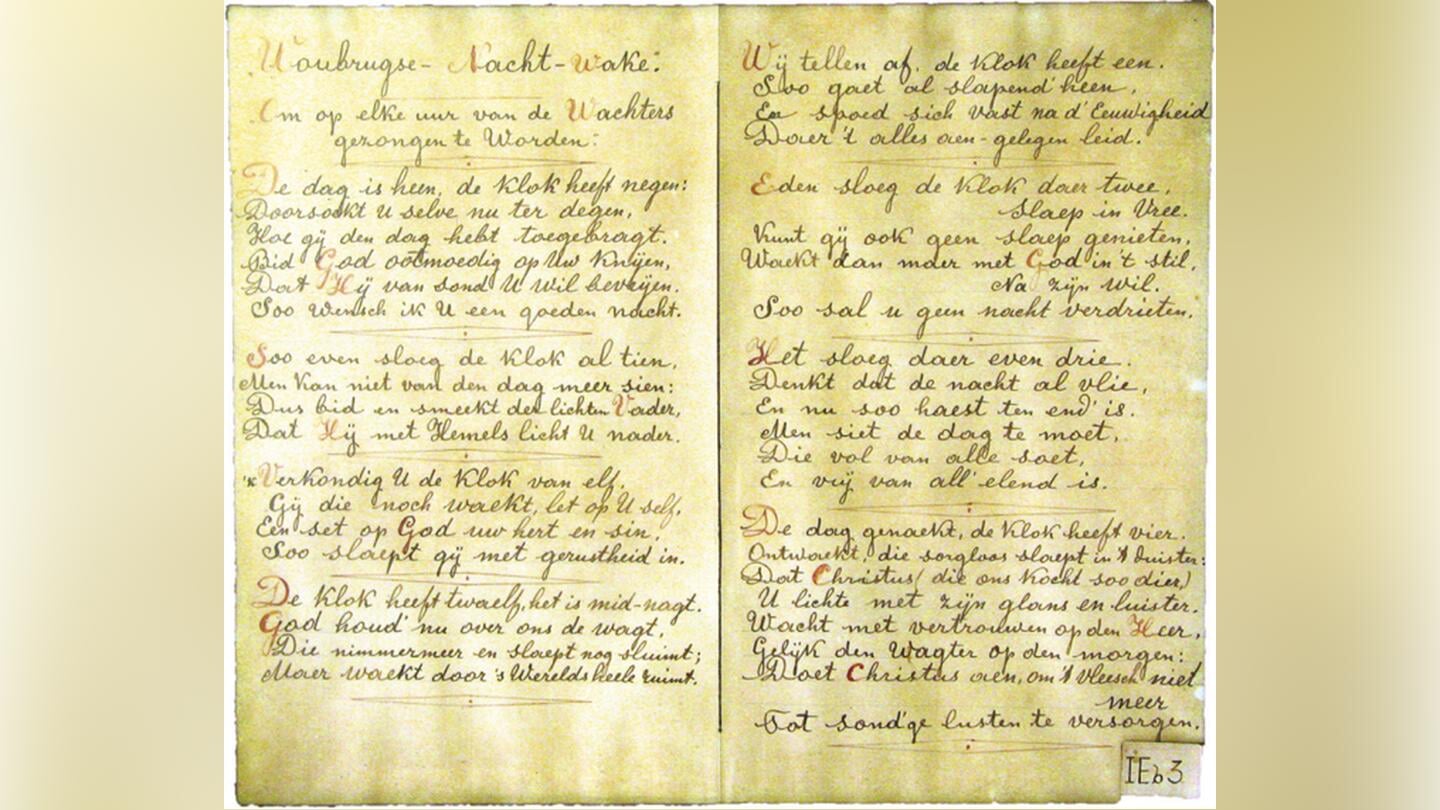 Woubrugse- Nacht-Wake:
Om op elke uur van de Wachters
gezongen te Worden:
De dag is heen, de klok heeft negen:
Doorsoekt U selve nu ter degen,
Hoe gij den dag hebt toegebragt.
Bid God ootmoedig op Uw Knijen,
Dat Hij van sond U wil bevrijen.
Soo Wensch ik U een goeden nacht.
Soo even sloeg de klok al tien,
Men kan niet van den dag meer sien:
Dus bid en smeekt der lichten Vader,
Dat Hij met Hemels licht U nader.
'k Verkondig U de klok van elf,
Gij die noch waekt, let op U self,
Een set op God uw hert en sin,
Soo slaept gij met gerustheid in.
De klok heeft twaelf, het is mid-nagt.
God houd' nu over ons de wagt,
Die nimmermeer en slaept nog sluimt;
Maer waekt door 's Werelds heele ruimt.
Wij tellen af, de klok heeft een.
Soo gaet al slapend' heen,
En spoed sich vast na d' Eeuwigheid
Daer 't alles aen-gelegen leid.
Eden sloeg de klok daer twee,
Slaep in Vree.
Kunt gij ook geen slaep genieten,
Waekt dan maer met God in 't stil,
Na zijn wil.
Soo sal u geen nacht verdrieten.
Het sloeg daer even drie.
Denkt dat de nacht al vlie,
En nu soo haest ten end' is.
Men siet de dag te moet,
Die vol van alle soet,
En vrij van all' elend is.
De dag genaekt, de klok heeft vier.
Ontwaekt, die sorgloos slaept in 't duister:
Dat Christus (die ons kocht soo dier)
U lichte met zijn glans en luister.
Wacht met vertrouwen op den Heer,
Gelijk den Wagter op den morgen:
Doet Christus aen, om 't vleesch niet
meer
Tot sond'ge lusten te versorgen.
IEb3